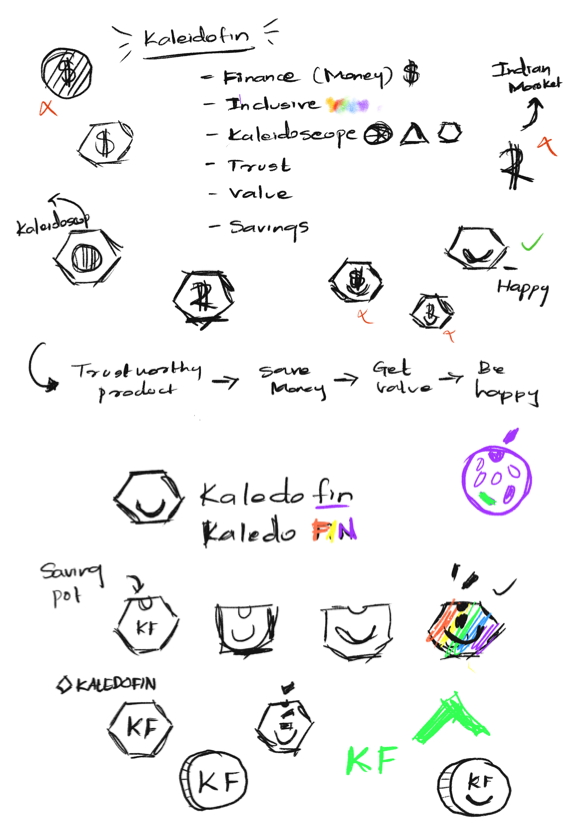 Kaleidofin
$
- Finance (Money) $
- Inclusive
- Kaleidoscope
- Trust
- Value
- Savings
Indian
Maroket
$
Kaleidoscop
Happy
Trustworthy product → Save Money → Get value → Be happy
Kaledofin
Kaledo FIN
Saving pot
KF
KALEDOFIN
KF
KF
KF
KF